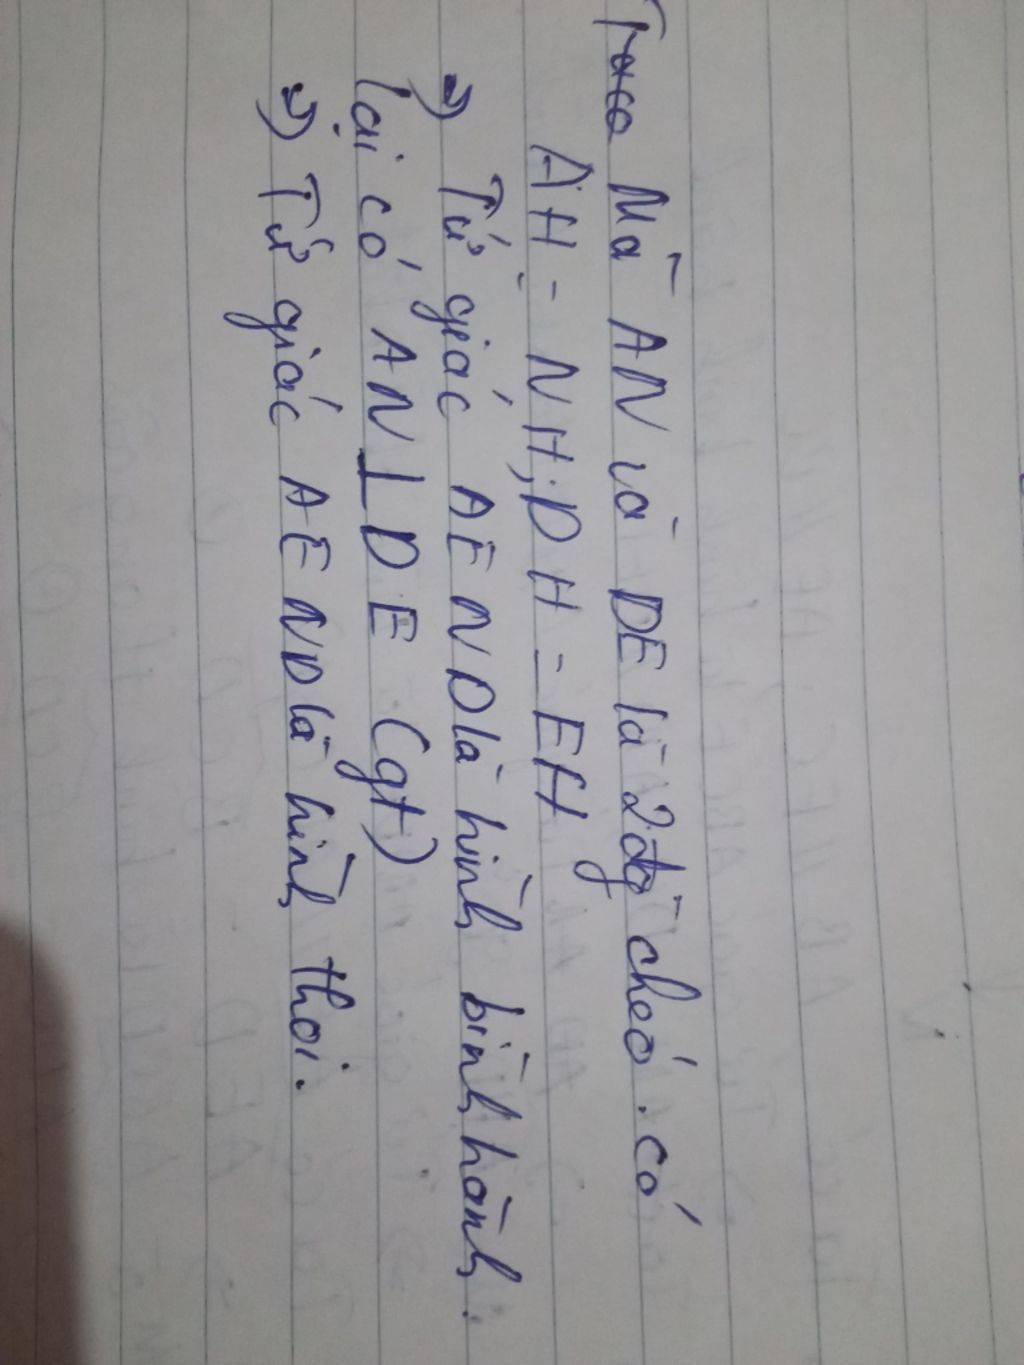 Mà AN và DE là 2 đg chéo. có
AH = NH, DH = EH
=) Tứ giác AENDlà hình bình hành.
lại có AN ⊥ DE (gt)
=) Tứ giác AENDlà hình thoi.